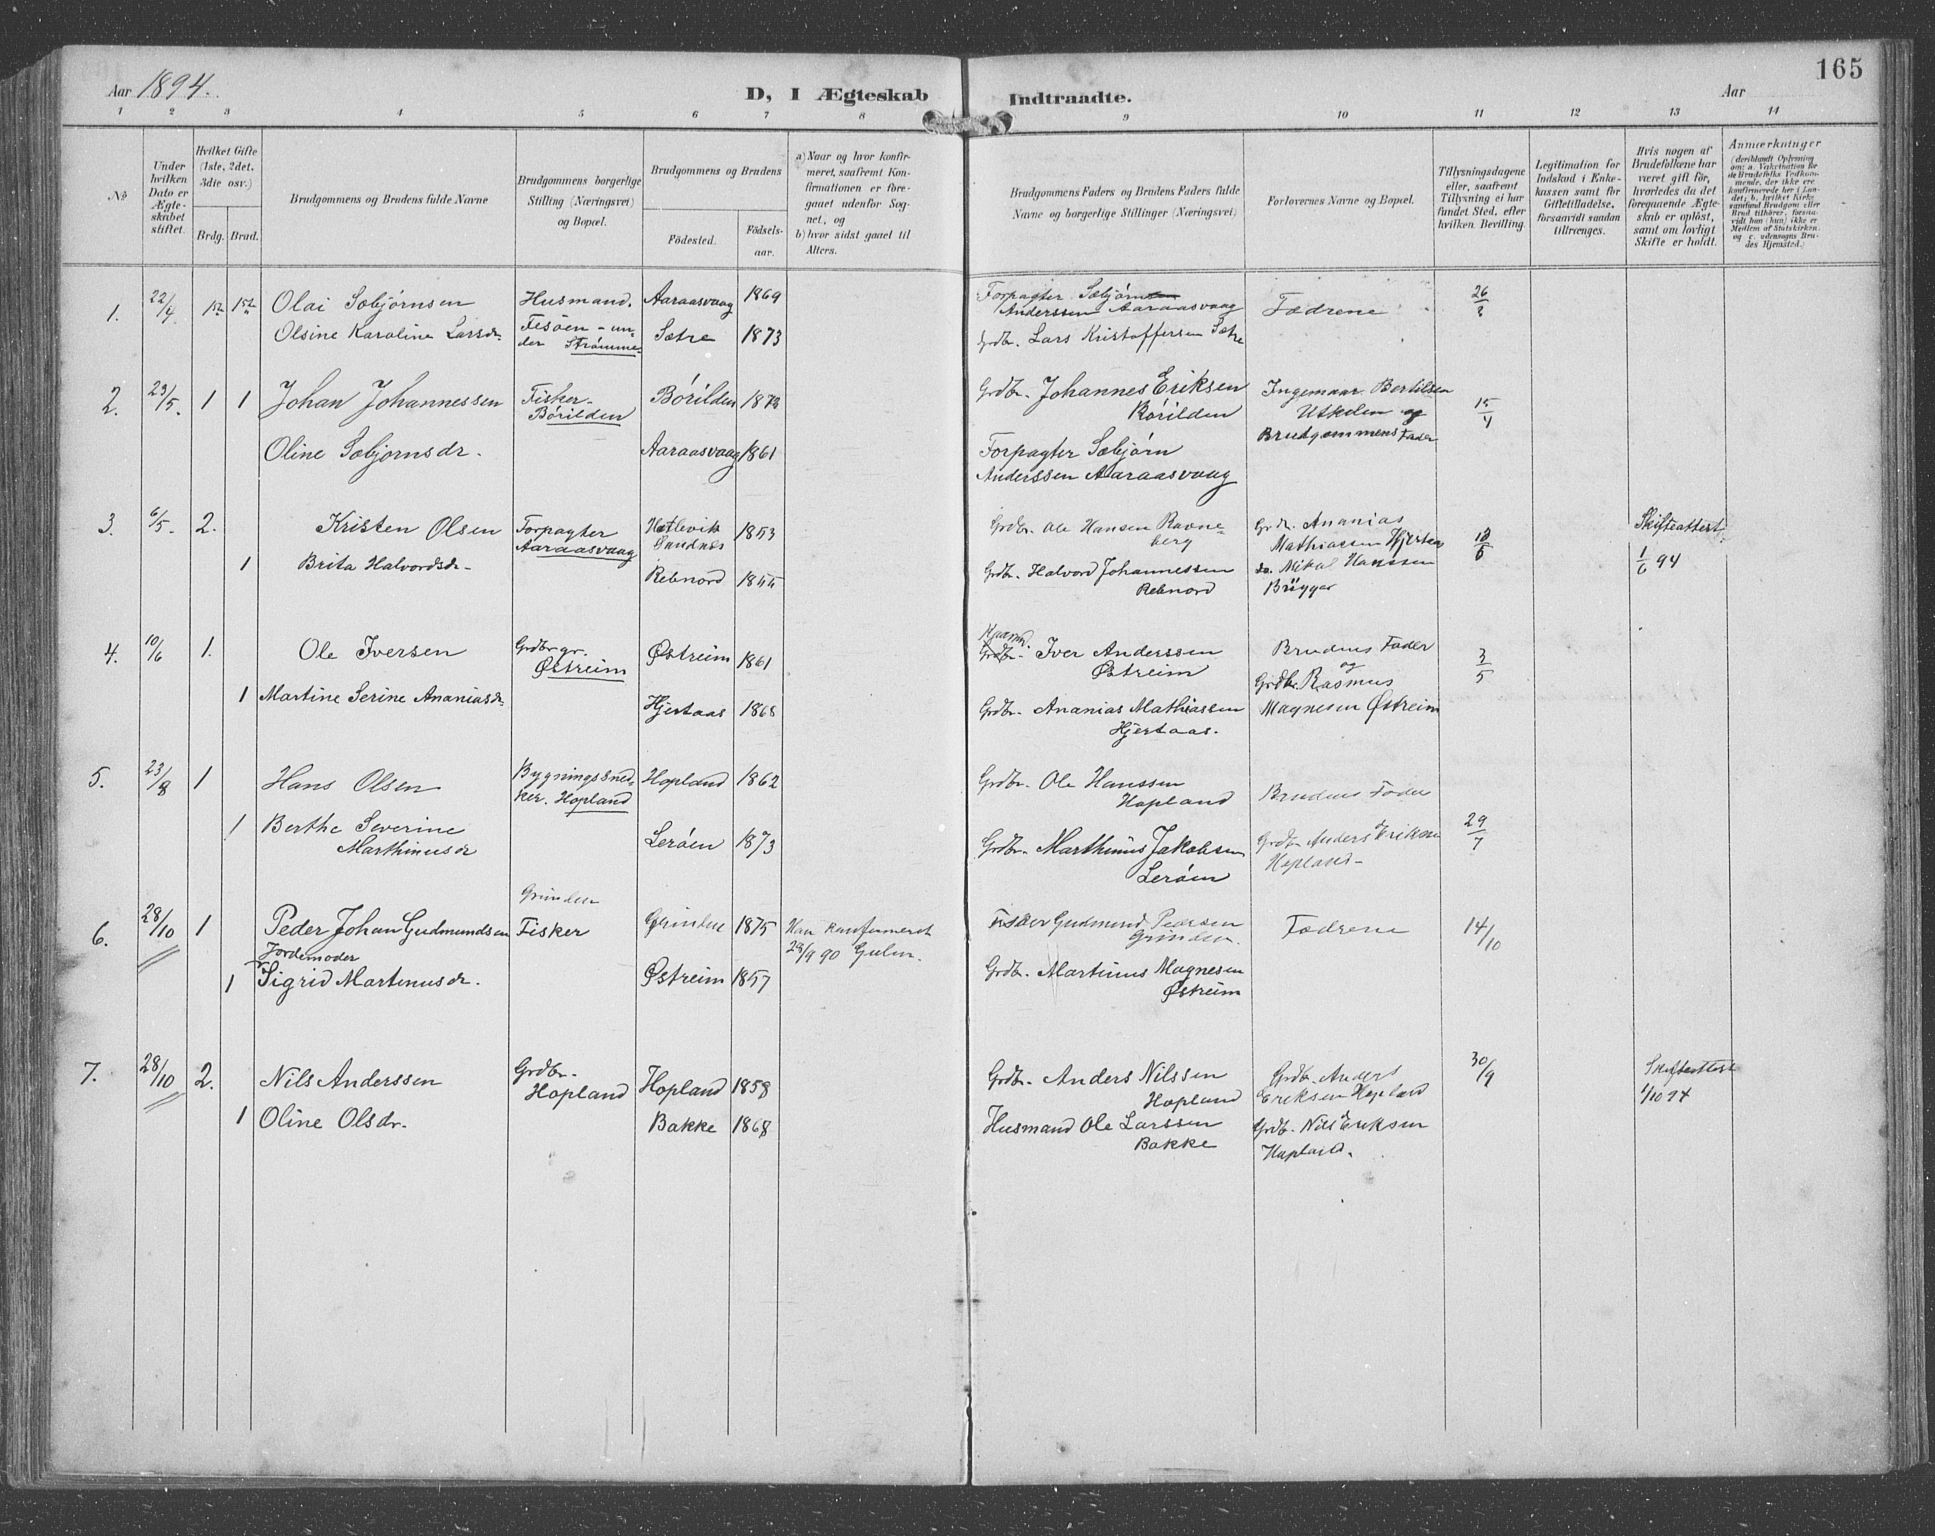 Aar 1894.
D, I Ægteskab Indtraadte.
Aar
165
1 2 3 4 5 6 7 8 9 10 11 12 13 14
No
Under hvilken Dato er Ægteskabet stiftet.
Hvilket Gifte (1ste, 2det, 3die osv.)
Brdg. Brud.
Brudgommens og Brudens fulde Navne
Brudgommens borgerlige Stilling (Næringsvei) og Bopæl.
Brudgommens og Brudens
Födested.
Födselsaar.
a) Naar og hvor konfirmeret, saafremt Konfirmationen er foregaaet udenfor Sognet, og
b) hvor sidst gaaet til Alters.
Brudgommens Faders og Brudens Faders fulde Navne og borgerlige Stillinger (Næringsvei)
Forlovernes Navne og Bopæl.
Tillysningsdagene eller, saafremt Tillysning ei har fundet Sted, efter hvilken Bevilling.
Legitimation for Indskud i Enkekassen samt for Giftetilladelse, forsaavidt saadan tiltrænges.
Hvis nogen af Brudefolkene har været gift før, hvorledes da det foregaaende Ægteskab er opløst, samt om lovligt Skifte er holdt.
Anmærkninger
1. 22/4 1ste 1ste Olai Sæbjørnsen Husmand. Aaraasvaag 1869 Forpagter Sæbjørn Fædrene 26/3
Anderssen Aaraasvaag
Olsine Karoline Larsdr Fesøen - under Strømme Sætre 1873 Grdbr. Lars Kristoffersen Sætre
2. 23/5. 1 1 Johan Johannessen Fisker Børilden Børilden Grdbr. Johannes Eriksen Børilden Ingemaar Bertilsen Utkelen og Brudgommens Fader 15/4
Oline Sæbjørnsdr. Aaraasvaag 1861 Forpagter Sæbjørn
Anderssen Aaraasvaag
3. 6/5. 2. Kristen Olsen Forpagter Aaraasvaag Hatlevik Sandnes 1853 Grdbr. Ole Hansen Ravneberg Grdbr. Ananias Mathiassen Hjertaas Skifteattest 1/6 94
1 Brita Halvordsdr. Rebnord Grdbr. Halvord Johannessen Rebnord do. Mikal Hanssen Brügger
4. 10/6 1. Ole Iversen Grdbr. Østreim Østreim 1861 Iver Anderssen Østreim Brudens Fader og 3/5
1 Martine Serine Ananiasdr. Hjertaas 1868 Grdbr. Ananias Mathiassen Hjertaas. Grdbr. Rasmus Magnesen Østreim
5. 23/8 1 Hans Olsen Bygningssnedker. Hopland Hopland 1862 Grdbr. Ole Hanssen Hopland Brudens Fader
1 Berthe Severine Marthinusdr Lerøen 1873 Grdbr. Marthinus Jakobsen Lerøen Grdbr. Anders Eriksen Hopland 29/7
Grinden
6. 28/10 1 Peder Johan Gudmundsen Fisker Grinden 1875 Han konfirmeret Fisker Gudmund Pedersen Grinden. Fædrene 14/10
23/9 90 Gulen.
Jordemoder
1 Sigrid Martinusdr. Østreim 1857 Grdbr. Martinus Magnesen Østreim
7. 28/10 2. Nils Anderssen Grdbr. Hopland Hopland 1858 Grdbr. Anders Nilssen Hopland Grdbr. Anders Eriksen Hopland 30/9 Skifteattest 1/10 94
1 Oline Olsdr. Bakke 1868 Husmand Ole Larssen Bakke Grdbr. Nils Eriksen Hopland.